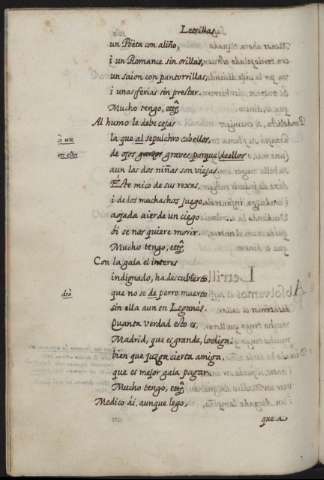 Letrillas,
un Poëta con aliño,
i un Romance sin orillas,
un saion con pantorrillas,
i unas ferias sin prestar.
Mucho tengo, etc.
Al humo le debe cejas
la que al sepulchro cabellos,
de ojos graves, porque dellos
aun las dos niñas son viejas.
Este mico de sus rexas,
i de dos muchachos juego,
aojada aier de un ciego
se nos quiere morir.
Mucho tengo, etc.
Con la gala el interes
indignado, ha descubierto,
que no se de perro muerto
sin ella aun en Leganés.
Quanta verdad esto es,
Madrid, que es grande, lo diga:
bien que juzga cierta amiga,
que es mejor gala pagar.
Mucho tengo, etc.
Medico ái, aunque lego,
que a